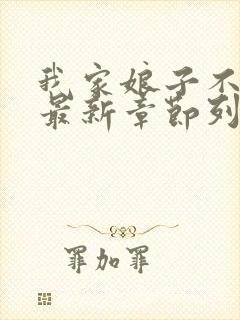 我家娘子不
最新章节列
罪加罪